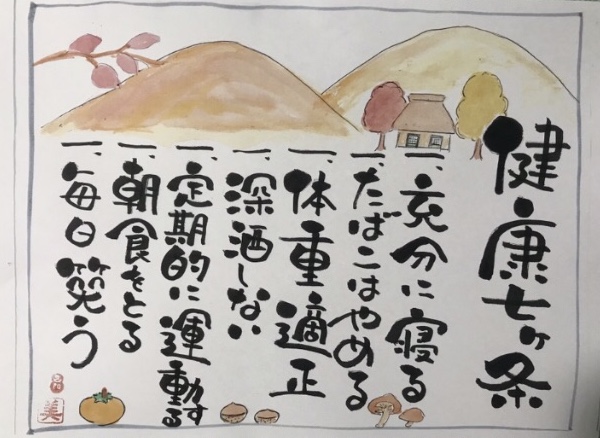 健康七ヶ条
一、充分に寝る
一、たばこはやめる
一、体重適正
一、深酒しない
一、定期的に運動する
一、朝食をとる
一、毎日笑う
美